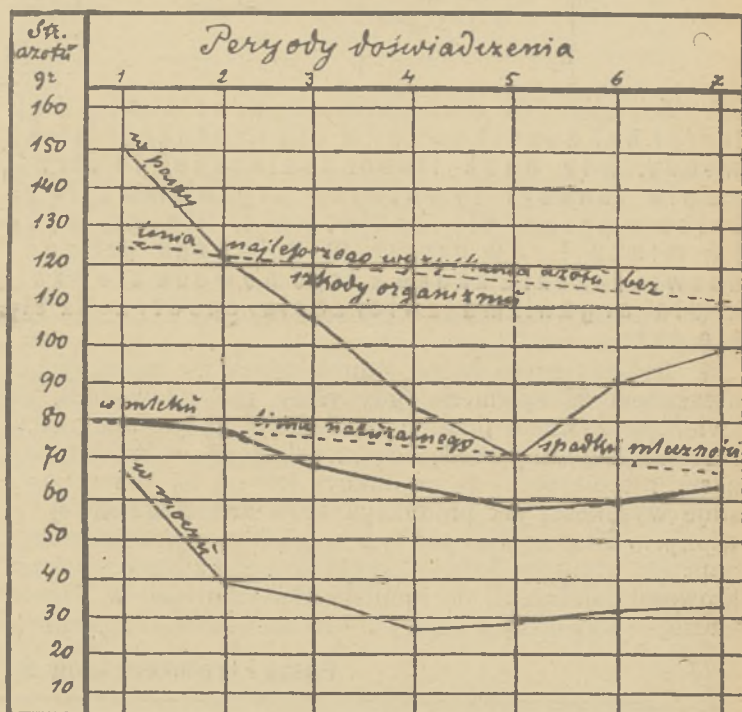 Str.
azotu
gr
Peryody doświadczenia
1 2 3 4 5 6 7
160
150
140
130
120
110
100
90
80
70
60
50
40
30
20
10
w paszy
linia najlepszego wyzyskania azotu bez
szkody organizmu
w mleku
linia naturalnego spadku mleczności
w moczu